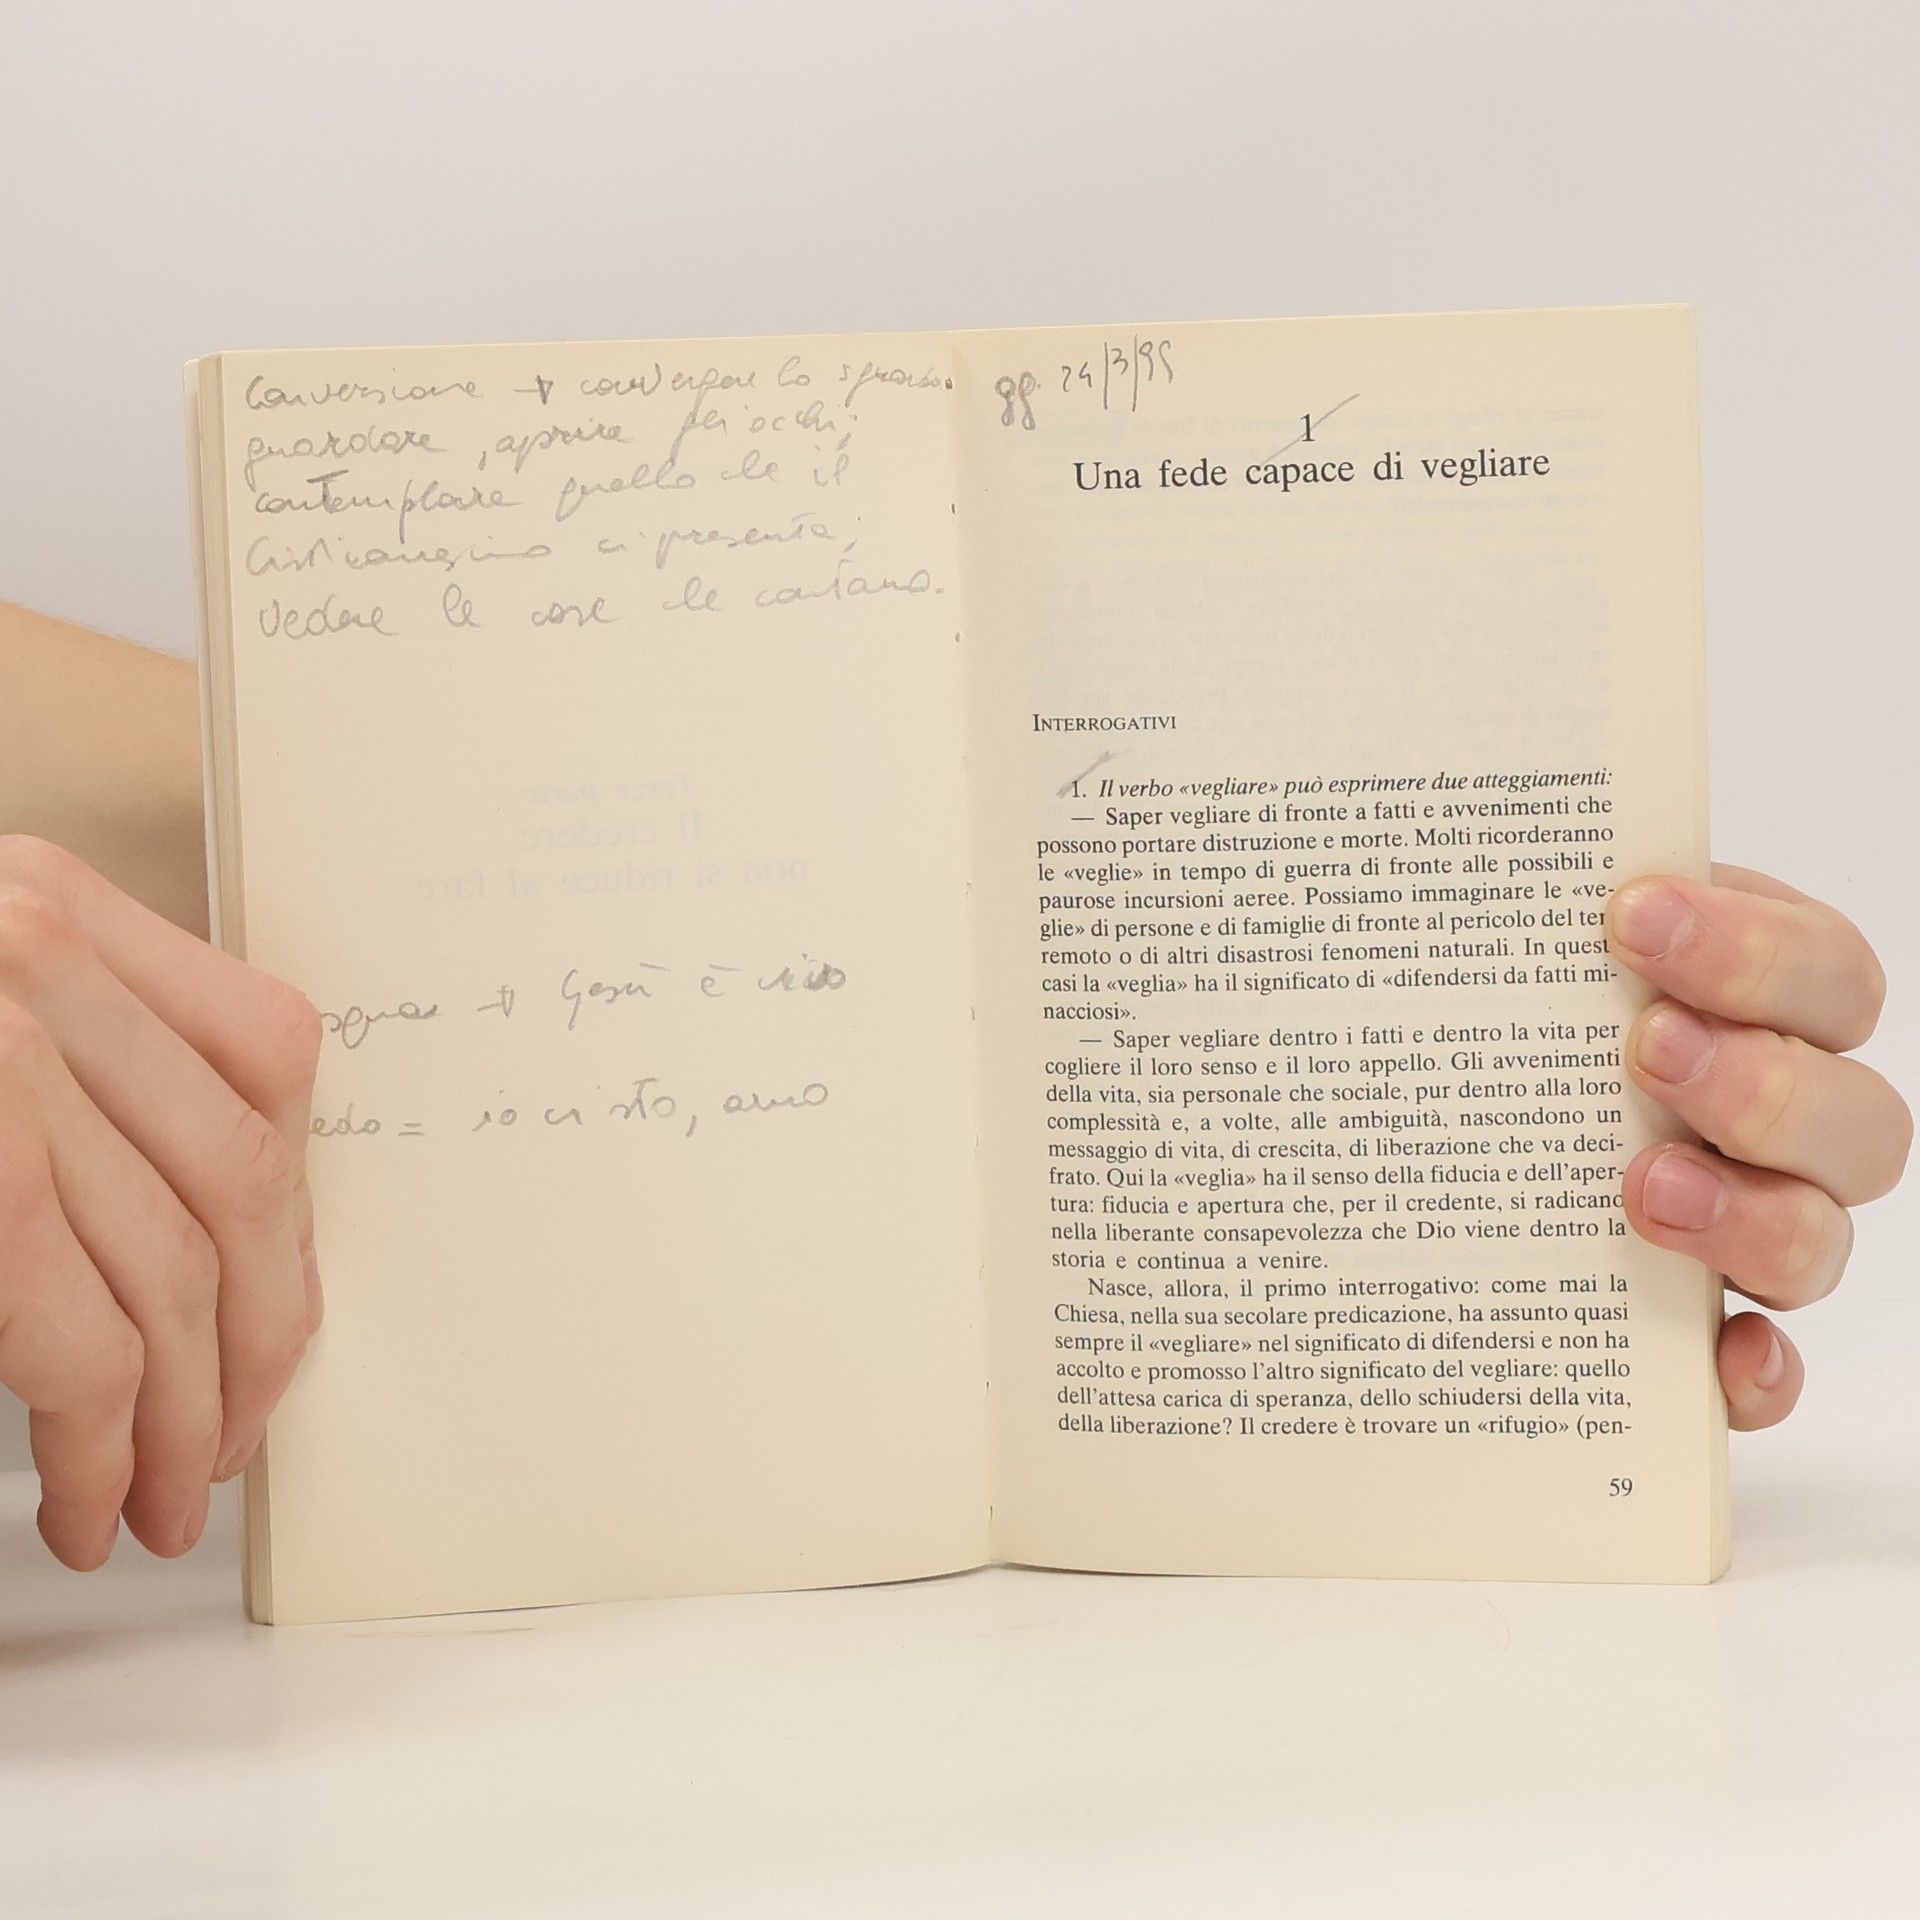 Conversione → convergere lo sguardo
guardare, aprire gli occhi;
contemplare quello che il
Cristianesimo ci presenta;
Vedere le cose che contano.
Terza parte
Il credere
non si riduce al fare
→ Gesù è vivo
edo = io ci sto, amo
gg. 24/3/95
1
Una fede capace di vegliare
INTERROGATIVI
1. Il verbo «vegliare» può esprimere due atteggiamenti:
— Saper vegliare di fronte a fatti e avvenimenti che
possono portare distruzione e morte. Molti ricorderanno
le «veglie» in tempo di guerra di fronte alle possibili e
paurose incursioni aeree. Possiamo immaginare le «ve-
glie» di persone e di famiglie di fronte al pericolo del ter
remoto o di altri disastrosi fenomeni naturali. In quest
casi la «veglia» ha il significato di «difendersi da fatti mi-
nacciosi».
— Saper vegliare dentro i fatti e dentro la vita per
cogliere il loro senso e il loro appello. Gli avvenimenti
della vita, sia personale che sociale, pur dentro alla loro
complessità e, a volte, alle ambiguità, nascondono un
messaggio di vita, di crescita, di liberazione che va deci-
frato. Qui la «veglia» ha il senso della fiducia e dell'aper-
tura: fiducia e apertura che, per il credente, si radicano
nella liberante consapevolezza che Dio viene dentro la
storia e continua a venire.
Nasce, allora, il primo interrogativo: come mai la
Chiesa, nella sua secolare predicazione, ha assunto quasi
sempre il «vegliare» nel significato di difendersi e non ha
accolto e promosso l'altro significato del vegliare: quello
dell'attesa carica di speranza, dello schiudersi della vita,
della liberazione? Il credere è trovare un «rifugio» (pen-
59